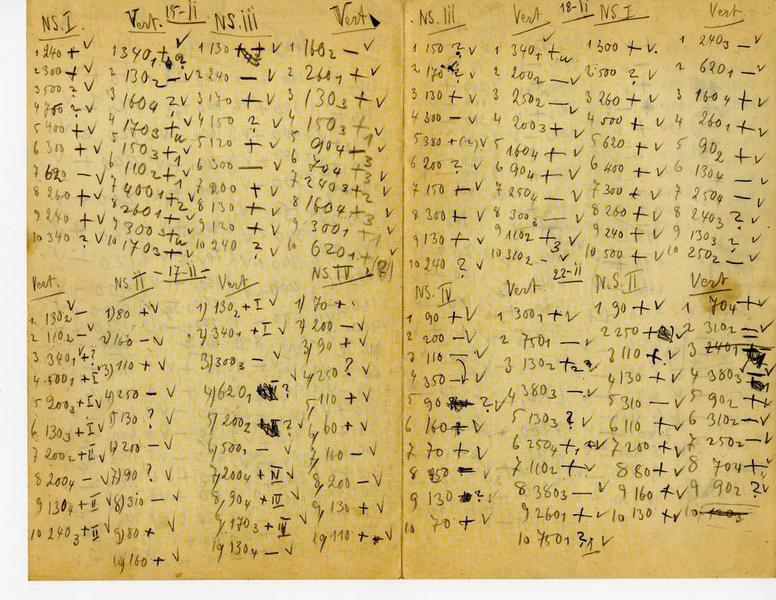 NS.I Vert. 15-II NS.iii Vert
1 240 + v 1 340₁ + ? v 1 130 + v 1 160₂ — v
2 300 + v 2 130₂ — v 2 240 — v 2 260₁ + v
3 500 ? v 3 160₄ ? v 3 170 + v 3 130₃ + v
4 700 ? v 4 170₃ + v 4 150 ? v 4 150₃ +
5 400 + v 5 150₃ + v 5 120 + v 5 90₄ —
6 300 + v 6 110₂ + v 6 300 — v 6 70₄ +
7 620 — v 7 400₁ + v 7 200 + v 7 240₃ +
8 260 + v 8 260₁ + v 8 130 + v 8 160₄ +
9 240 + v 9 300₃ + v 9 120 + v 9 300₁ +
10 340 ? v 10 170₃ + v 10 240 ? v 10 620₁ + (?)
Vert. NS.II - 17-II - Vert NS.IV
1 130₂ — 1) 80 + v 1) 130₂ + I v 1) 70 +
2 110₂ — v 2) 160 — v 2) 340₁ + I v 2) 200 — v
3 340₁ v ? 3) 110 + v 3) 300₃ — v 3) 90 + v
4 500₁ + I 4) 250 — v 4) 620₁ ? 4) 250 ? v
5 200₃ + I v 5) 130 ? v 5) 200₂ ? v 5) 110 + v
6 130₃ + I v 6) 200 — v 6) 500₁ — v 6) 60 + v
7 200₂ + II v 7) 90 ? v 7) 200₄ + IV v 7) 160 — v
8 200₄ — v 8) 310 — v 8) 90₄ + IV v 8) 200 — v
9 130₄ + II v 9) 80 + v 9) 170₃ + II v 9) 130 + v
10 240₃ + II v 10) 160 + v 10) 130₄ — v 10) 110 + v
NS. III Vert 18-II NS.I Vert.
1 150 ? v 1 340₁ + v 1 300 + v 1 240₃ — v
2 170 v 2 200₂ — v 2 500 ? v 2 620₁ — v
3 130 + v 3 250₂ — v 3 260 + v 3 160₄ + v
4 300 — v 4 200₃ + v 4 500 + v 4 260₁ + v
5 380 + (2) v 5 160₄ + v 5 620 + v 5 90₂ + v
6 200 ? v 6 90₄ + v 6 400 + v 6 130₄ — v
7 150 + v 7 250₄ — v 7 300 + v 7 250₄ — v
8 300 + v 8 300₃ — v 8 260 + v 8 240₃ ? v
9 130 + v 9 110₂ + ₃ v 9 240 + v 9 130₃ ? v
10 240 ? v 10 310₂ — v 10 500 + v 10 250₂ — v
NS. IV Vert. 22-II NS.II Vert
1 90 + v 1 300₁ + v 1 90 + v 1 70₄ + v
2 200 — v 2 750₁ — v 2 250 + v 2 310₂ = v
3 110 — v 3 130₂ + v 3 110 + v 3 240₁
4 350 — v 4 380₃ — v 4 130 + v 4 380₃ — v
5 90 ? v 5 130₃ ? v 5 310 — v 5 90₂ + v
6 160 v 6 250₄ + v 6 110 + v 6 310₂ — v
7 70 + v 7 110₂ + v 7 200 + v 7 250₂ — v
8 v 8 380₃ — v 8 80 + v 8 70₄ + v
9 130 ? v 9 260₁ + v 9 160 + v 9 90₂ ? v
10 70 + v 10 750₁ ? v 10 130 + v 10